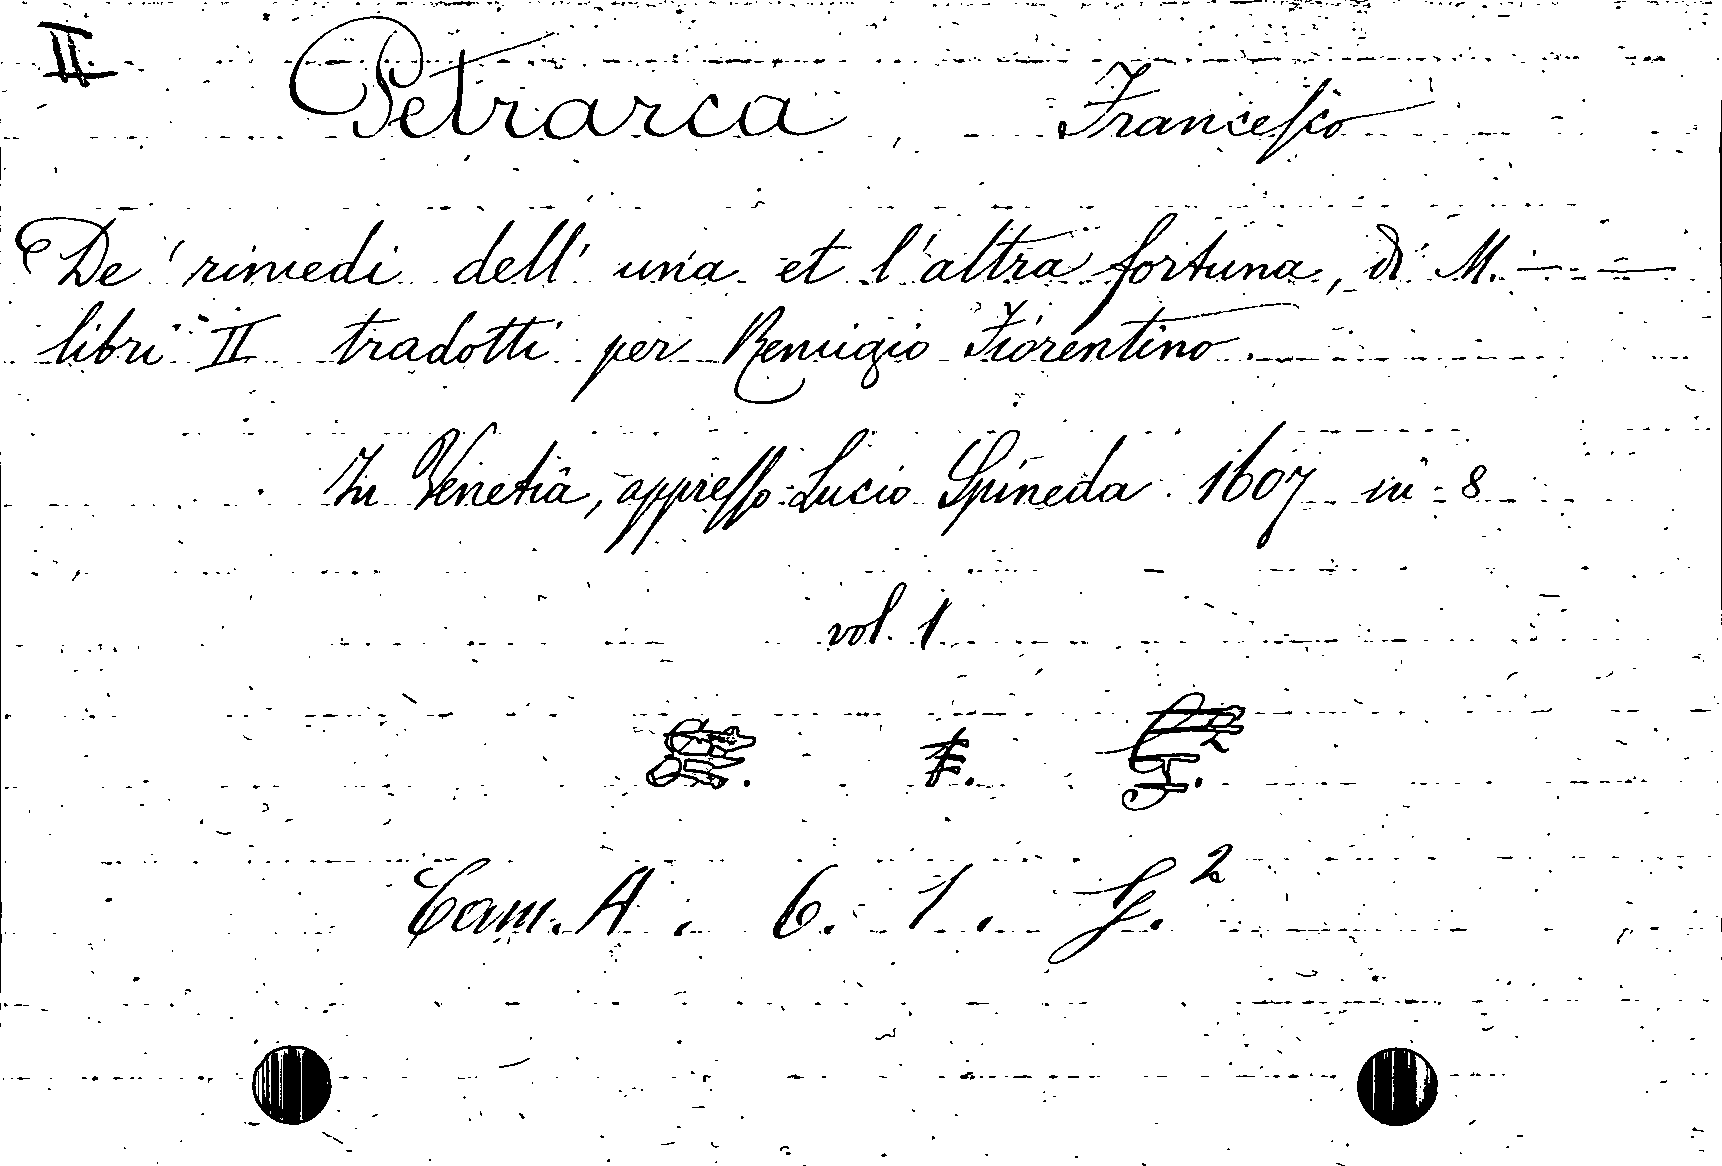 II.
Petrarca, Francesco
De' rimedi dell' una et l'altra fortuna, di M. — —
libri II tradotti per Remigio Fiorentino.
In Venetia, appresso Lucio Spineda. 1607 in 8
vol. 1
Cam. A. 6. 1. G.²